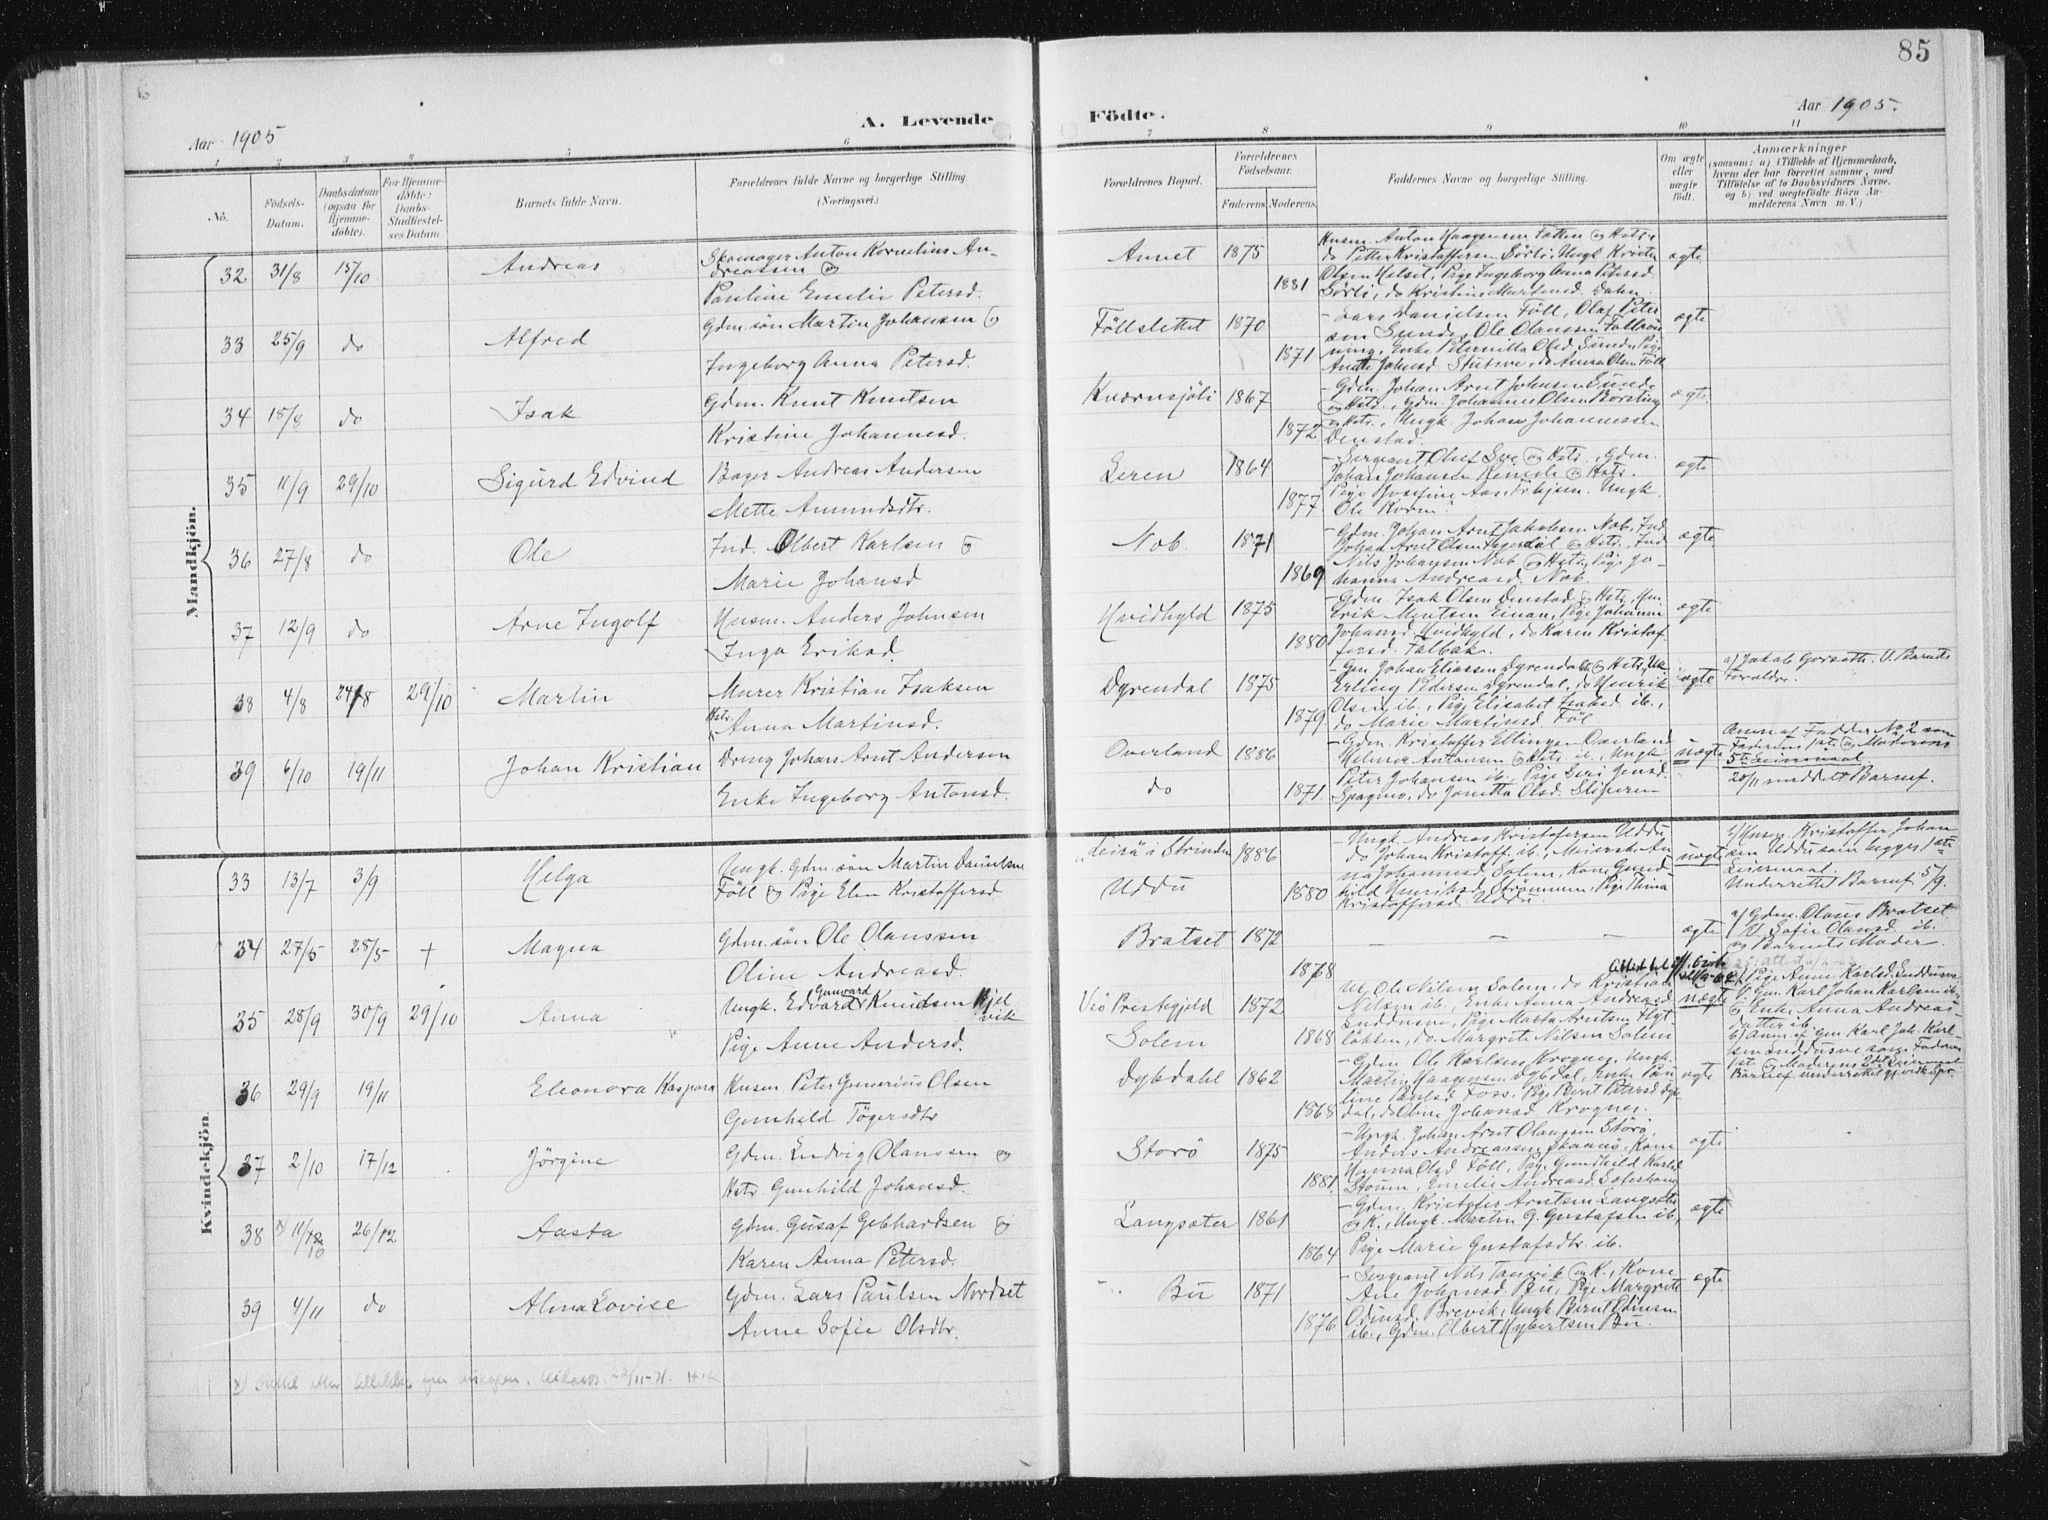 85
Aar 1905
A. Levende
Födte.
Aar 1905.
1 2 3 4 5 6 7 8 9 10 11
No.
Födsels-Datum.
Daabsdatum (ogsaa for Hjemme-döbte).
For Hjemme-döbte: Daabs-Stadfæstel-ses Datum
Barnets fulde Navn.
Forældrenes fulde Navne og borgerlige Stilling.
(Næringsvei.)
Forældrenes Bopæl.
Forældrenes Födselsaar.
Faderens. Moderens.
Faddernes Navne og borgerlige Stilling.
Om ægte eller uægte födt.
Anmærkninger
(saasom: a) i Tilfælde af Hjemmedaab,
hvem der har forrettet samme, med
Tilföielse af to Daabsvidners Navne,
og b) ved uægtefödte Börn An-
melderens Navn m. V.)
Mandkjön.
32 31/8 15/10 Andreas
Skomager Anton Kornelius An-
dreassen og
Pauline Emelie Petersd.
Annet 1875 1881
Husm. Anton Haagensen Fætten og Hstr.
do Petter Kristoffersen Sörli, Ungk. Kristen
Olsen Helset, Pige Ingeborg Anna Petersd.
Sörli, do Kristine Martinsd. Dahn.
ægte
33 25/9 do Alfred
Gdm. sön Martin Johansen og
Ingeborg Anna Petersd.
Föllslettet 1870 1871
- Lars Danielsen Föll, Olaf Peter-
sen Sunde, Ole Olaussen
Enke Peternilla Olsd. Sunde, Pige
do Anna Olsen Föll
ægte
34 15/8 do Isak
Gdm. Knut Knutsen
Kristine Johannesd.
Kværnsjöli 1867 1872
- Gdm. Johan Arnt Johnsen Sunde
og Hstr., Gdm. Johannes Olsen Borsting
og Hstr., Ungk. Johan Johannessen
Denstad.
ægte
35 11/9 29/10 Sigurd Edvind
Bager Andreas Andersen
Mette Amundsdtr.
Leren 1864 1877
- Sergeant Oluf Sve og Hstr., Gdm.
Johan Johansen og Hstr.
Pige Josefine Ungk.
Ole
ægte
36 27/8 do Ole
Ind. Olbert Karlsen og
Marie Johansd
Nob. 1871 1869
- Gdm. Johan Arnt Jakobsen Nob, Ind.
Johan Arnt Olsen og Hstr., Ind
Nils Johansen Nob og Hstr., Pige Jo-
hanna Andreasd. Nob.
ægte
37 12/9 do Arne Ingolf
Husm. Anders Johnsen
Inga Eriksd.
Hvidhyld 1875 1880
- Gdm. Isak Olsen Denstad og Hstr.,
Erik Einan, Pige Johanna
Johansd. Hvidhyld, do Karen Kristof
fersd. Falbak.
ægte
38 4/8 24/8 29/10 Martin
Murer Kristian Isaksen
Hstr. Anna Martinsd.
Dyrendal 1875 1879
- Gm. Johan Eliassen Dyrendal og Hstr., Uk.
Erling Pedersen Dyrendal, do Henrik
Olsen ib., Pige Elisabet Isaksd. ib.,
do Marie Martinsd. Föl
ægte
a) Jakob Gorseth. V. Barnets
Foreldre.
39 6/10 19/11 Johan Kristian
Dreng Johan Arnt Andersen
Enke Ingeborg Antonsd.
Overland 1886
do 1871
- Gdm. Kristoffer Ellingsen Overland
Helmer Antonsen og Hstr. ib., Ungk.
Peter Johansen ib., Pige Siri Jensd.
Spagmo, do Jonetta Olsd. Slisperen
uægte
Anm. af Fadder No 2 som
Faderens 1ste og Moderens
5te Leiermaal.
20/11 meddelt Barnef.
Kvindekjön
33 13/7 3/9 Helga
Ungk. Gdm. sön Martin Danielsen
Föll og Pige Elen Kristoffersd.
"Leira" i Strinden 1886
Uddu 1880
- Ungk. Andreas Kristofersen Uddu
do Johan Kristoff. ib., Meiersk. An-
na Johannesd. Solem, Kone Gund-
hild Henriksd. Strömmen, Pige Thina
Kristoffersd. Uddu.
uægte
b) Husm. Kristoffer Johan
sen Uddu som begges 1ste
Leiermaal.
Underrettet Barnef. 5/9.
34 27/5 28/5 + Magna
Gdm. sön Ole Olaussen
Oline Andreasd.
Bratset 1872 1878
- - -
ægte
a) Gdm. Olaus Bratset
V. Sofie Olausd. ib.
og Barnets Moder.
35 28/9 30/9 29/10 Anna
Ungk. Edvard Gunvard Knudsen Kjel
vik
Pige Anne Andersd.
Vio Prestegjeld 1872
Solem 1868
Uk. Ole Nilsen Solem, do Kristian
Nilsen ib., Enke Anna Andreasd.
Pige Marta Arntsen
do. Margrete Nilsen Solem
uægte
a) Pige Anne Karlsd.
V. Gm. Karl Johan Karlsen ib.
og Enke Anna Andreas-
datter ib.
b) Anm. ib. Gm Karl Joh. Karl-
sen som Faderens
1ste og Moderens 2det Leiermaal
36 29/9 19/11 Eleonora Kaspara
Husm Peter Gunerius Olsen
Gunhild Tögersdtr
Dybdahl 1862 1868
- Gdm. Ole Karlsen Krognes, Ungk.
Martin Haagensen Dybdal, Enke Pau
line Paulsd. Foss, Pige Berit Petersd. Dyb-
dal, do Oline Johansd. Krognes.
ægte
37 2/10 17/12 Jörgine
Gdm. Ludvig Olaussen og
Hstr. Gunhild Johansd.
Storö 1875 1881.
- Ungk. Johan Arnt Olaussen Storö,
Anders Andreassen Skaanö, Kone
Hanna Olsd Föll, Pige Gundhild Karlsd
Stoum, Emelie Andreasd.
ægte
38 x) 11/10 26/12 Aasta
Gdm. Gusaf Gebhardsen og
Karen Anna Petersd.
Langsæter 1861 1864
- Gdm. Kristofer Arntsen Langsæter
og K., Ungk. Martin G. Gustafsen ib,
Pige Marie Gustafsdtr. ib.
ægte
39 4/11 do Alma Lovise
Gdm. Lars Paulsen Nordset
Anne Sofie Olsdtr.
Bu 1871 1876
- Sergeant Nils Tanvik og K., Kone
Ane Johansd. Bu, Pige Margrete
Odinsd. Brevik, Ungk. Bernt Odinsen
ib., Gdm. Olbert Hybertsen Bu.
ægte